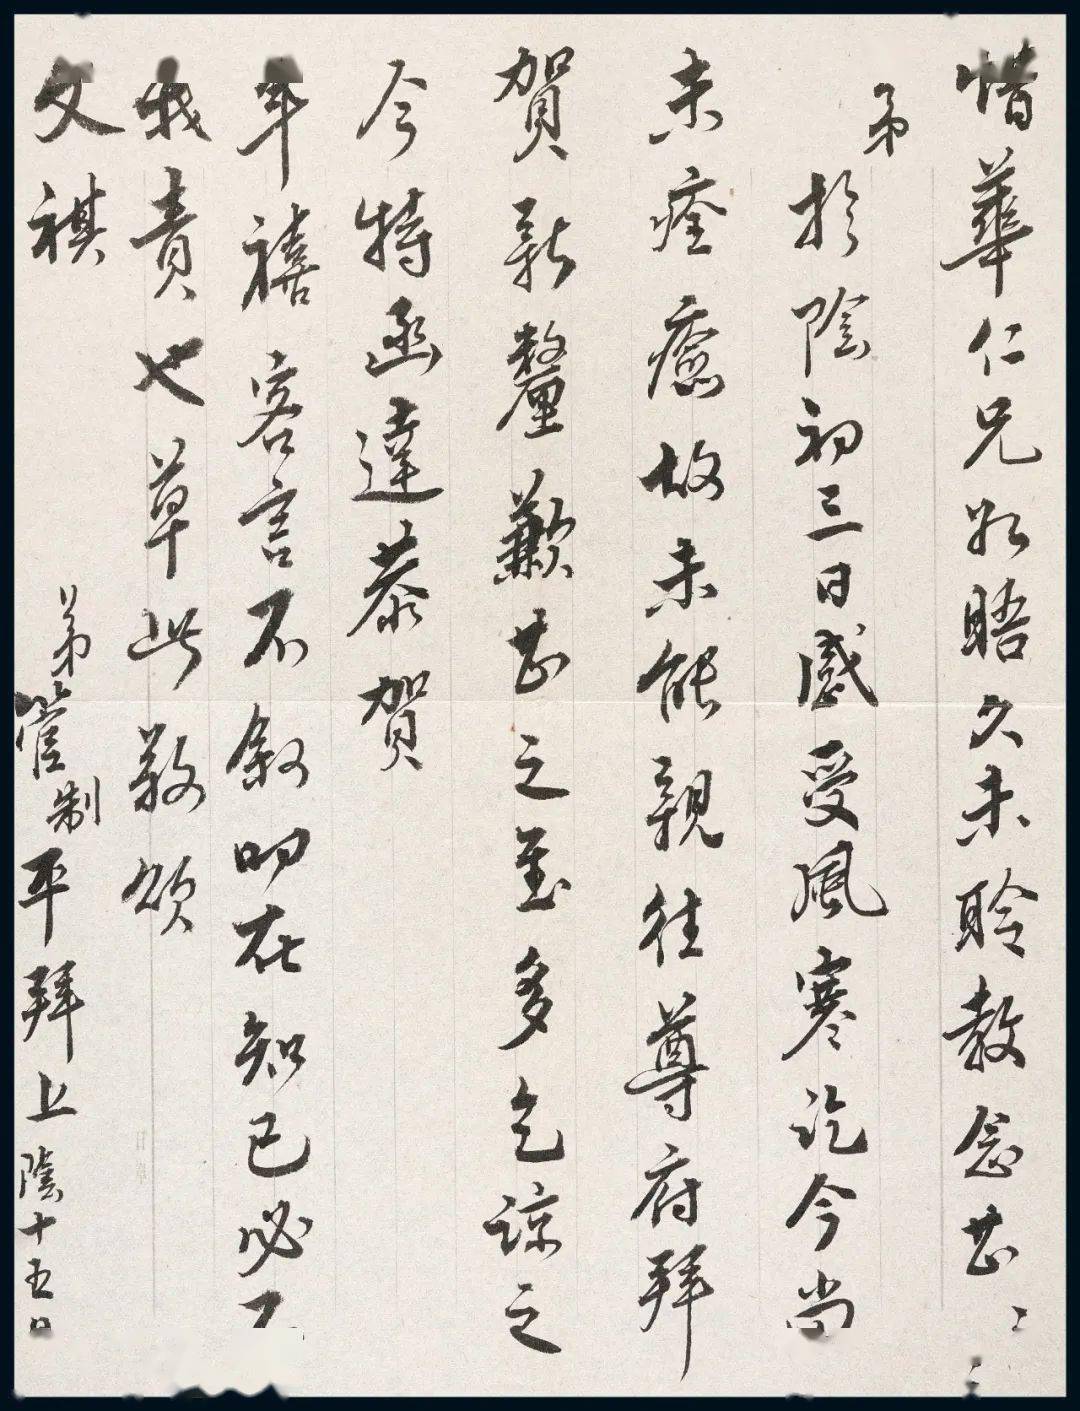 惜華仁兄如晤久未聆教念甚〻
弟於陰初三日感受風寒訖今尚
未痊癒故未能親往尊府拜
賀新釐歉甚之至多乞諒之
今特函達恭賀
年禧客言不敘叨在知己必不
我責也草此敬頌
文祺
弟管制平拜上陰十五日